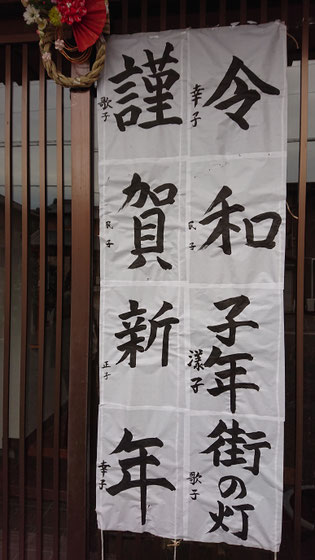 令
幸子
和
民子
子年
漾子
街の灯
歌子
謹
歌子
賀
民子
新
正子
年
幸子